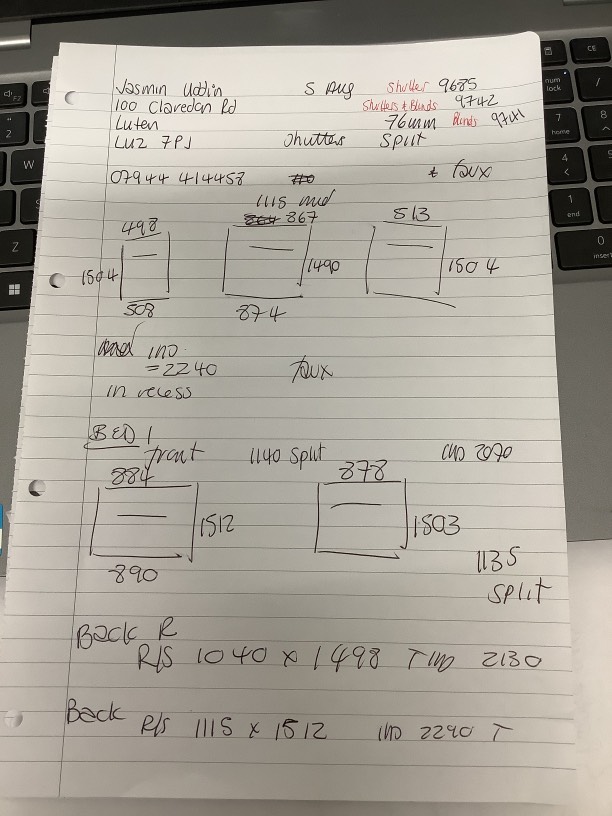 Jasmin Uddin S Aug Shutter 9685
100 Claredon Rd Shutters + Blinds 9742
Luten 76mm Blinds 9741
LU2 7PJ Shutters Split
07944 414458 + faux
1115 mid
498 867 513
1504 1490 1504
508 874
IND
=2240 faux
in recess
BED 1
front 1140 split IND 2070
884 878
1512 1503
890 1135
split
Back R
R/S 1040 x 1498 T IND 2130
Back R/S 1115 x 1512 IND 2290 T
num lock
7 home
4
1 end
0 insert
8
F3
2
W
Z